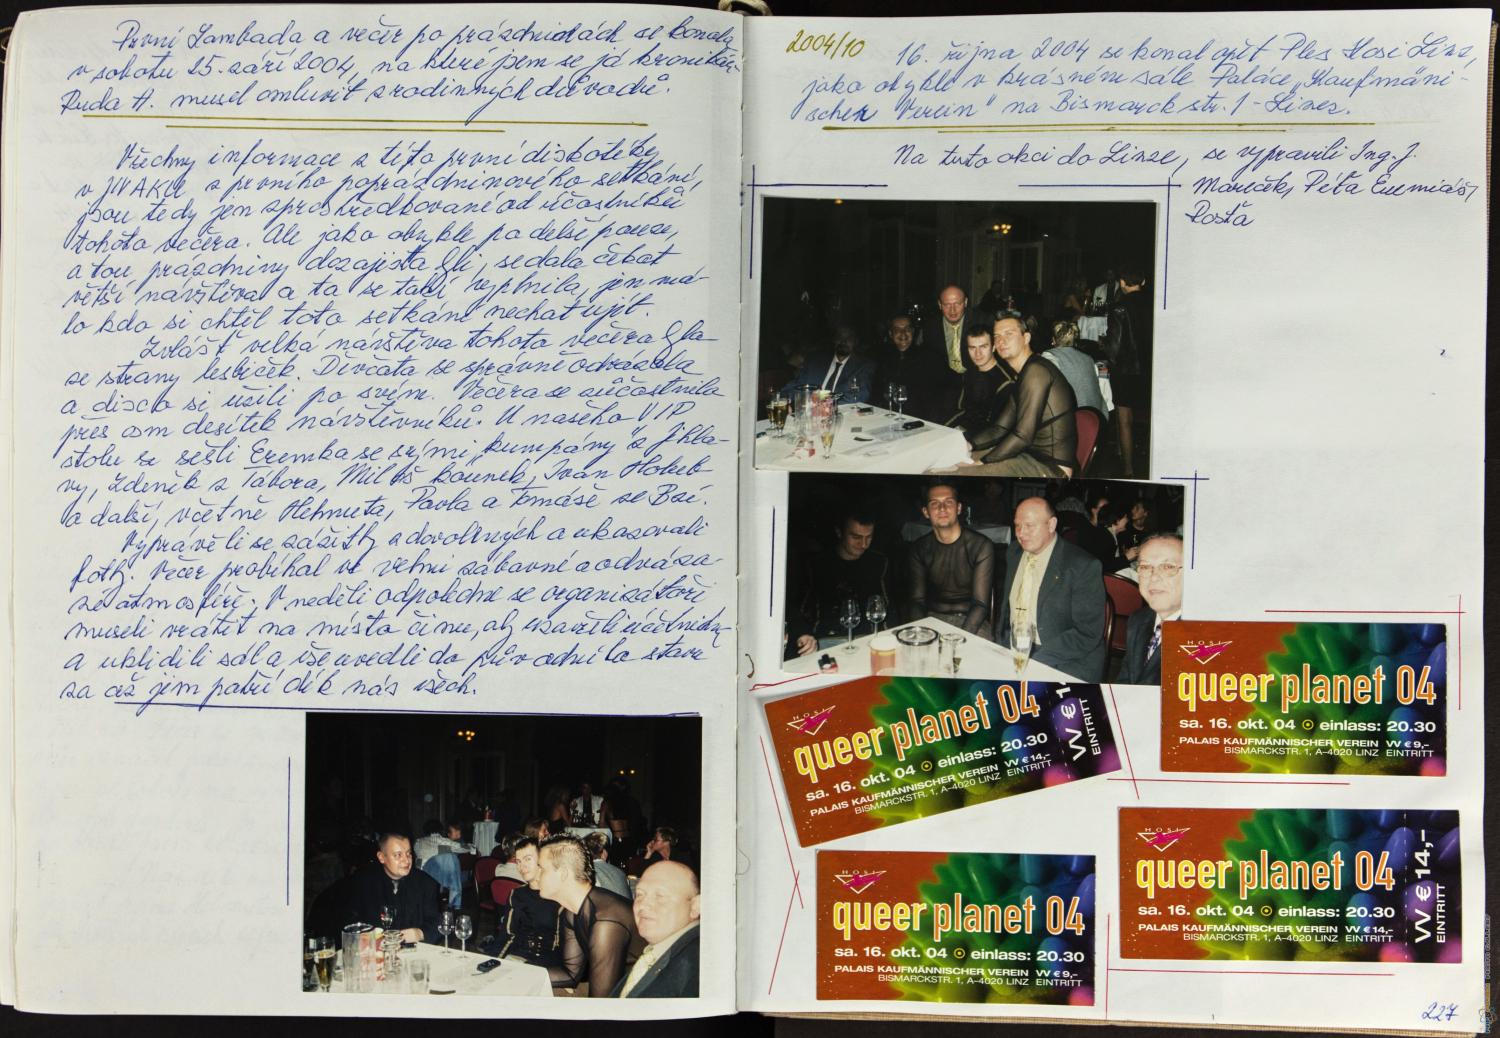 První Lambada a večer po prázdninách se konala
v sobotu 25. září 2004, na které jsem se já kronikář
Ruda H. musel omluvit z rodinných důvodů.
Všechny informace z této první diskotéky
v JIVAKU z prvního poprázdninového setkání,
jsou tedy jen zprostředkované od účastníků
tohoto večera. Ale jako obykle, po delší pauze,
a tou prázdniny dozajista byli, se dala čekat
větší návštěva a ta se také vyplnila, jen má-
lo kdo si chtěl toto setkání nechat ujít.
Zvlášť velká návštěva tohoto večera byla
ze strany lesbiček. Děvčata se správně odvázala
a disco si užili po svém. Večera se zúčastnila
přes osm desítek návštěvníků. U našeho VIP
stolu se sešli Eremka se svými "kumpány" z Jihla-
vy, Zdeněk z Tábora, Miloš Kounek, Ivan Holub
a další, včetně Helmuta, Pavla a Tomáše ze Bzí.
Vyprávěli se zážitky z dovolených a ukazovali
fotky. Večer probíhal ve velmi zábavné a odváza-
né atmosféře. V neděli odpoledne se organizátoři
museli vrátit na místo činu, aby uzavřeli účetnictví
a uklidili sál a vše uvedli do původního stavu
za což jim patří dík nás všech.
2004/10
16. října 2004 se konal opět Ples Hosi Linz,
jako obykle v krásném sále Paláce "Kaufmäni-
scher Verein" na Bismarck str. 1 - Linz.
Na tuto akci do Linze, se vypravili Ing. J.
Mareček, Péťa Eremiáš,
Rosťa
HOSI
queer planet 04
sa. 16. okt. 04 einlass: 20.30
PALAIS KAUFMÄNNISCHER VEREIN VV € 9,–
BISMARCKSTR. 1, A–4020 LINZ EINTRITT
HOSI
queer planet 04
sa. 16. okt. 04 einlass: 20.30
PALAIS KAUFMÄNNISCHER VEREIN VV € 14,–
BISMARCKSTR. 1, A–4020 LINZ EINTRITT
VV € 14
EINTRITT
HOSI
queer planet 04
sa. 16. okt. 04 einlass: 20.30
PALAIS KAUFMÄNNISCHER VEREIN VV € 14,–
BISMARCKSTR. 1, A–4020 LINZ EINTRITT
VV € 14,–
EINTRITT
HOSI
queer planet 04
sa. 16. okt. 04 einlass: 20.30
PALAIS KAUFMÄNNISCHER VEREIN VV € 9,–
BISMARCKSTR. 1, A–4020 LINZ EINTRITT
227